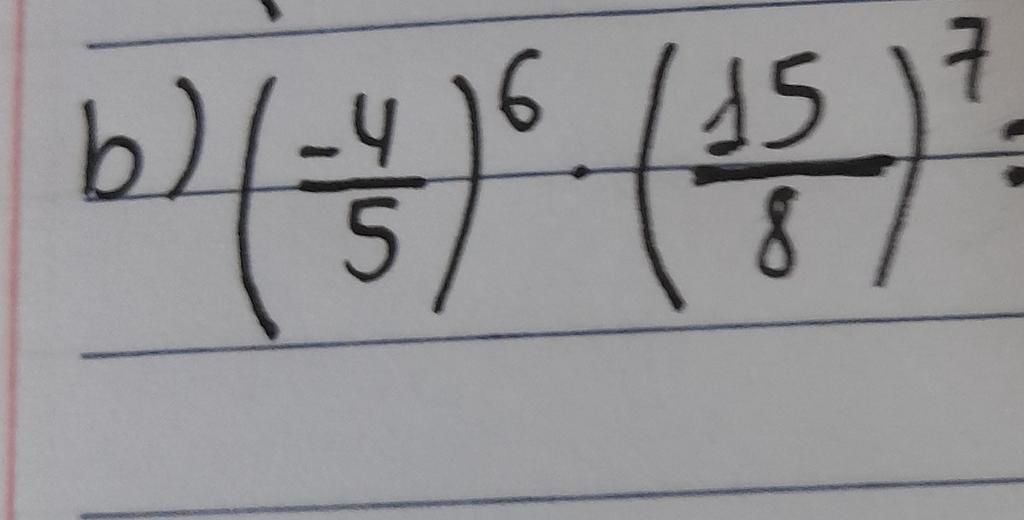 b) (-4/5)^6 · (15/8)^7 =